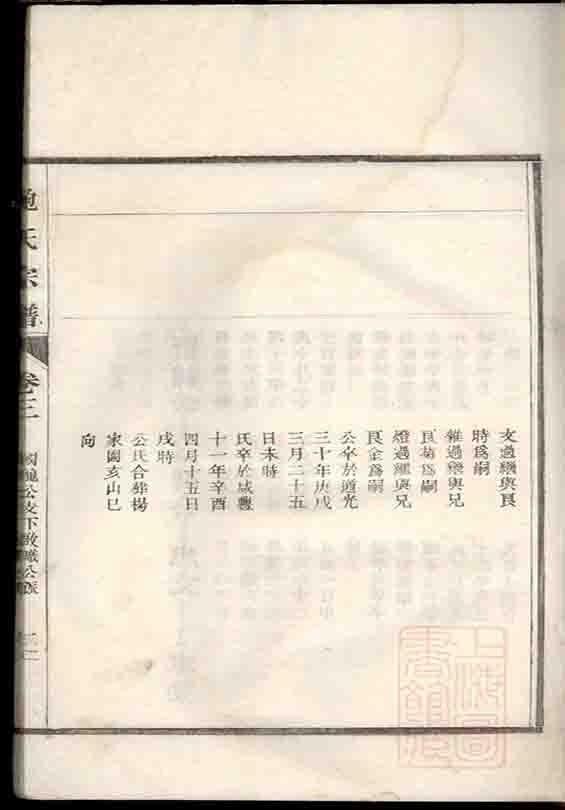 文過繼與艮
時爲嗣
雜過繼與兄
艮菊爲嗣
燈過繼與兄
艮金爲嗣
公卒於道光
三十年庚戌
三月二十五
日未時
氏卒於咸豐
十一年辛酉
四月十五日
戌時
公氏合葬楊
家園亥山巳
向
鮑氏宗譜
卷三
公支下敬職公派
上海圖書館藏